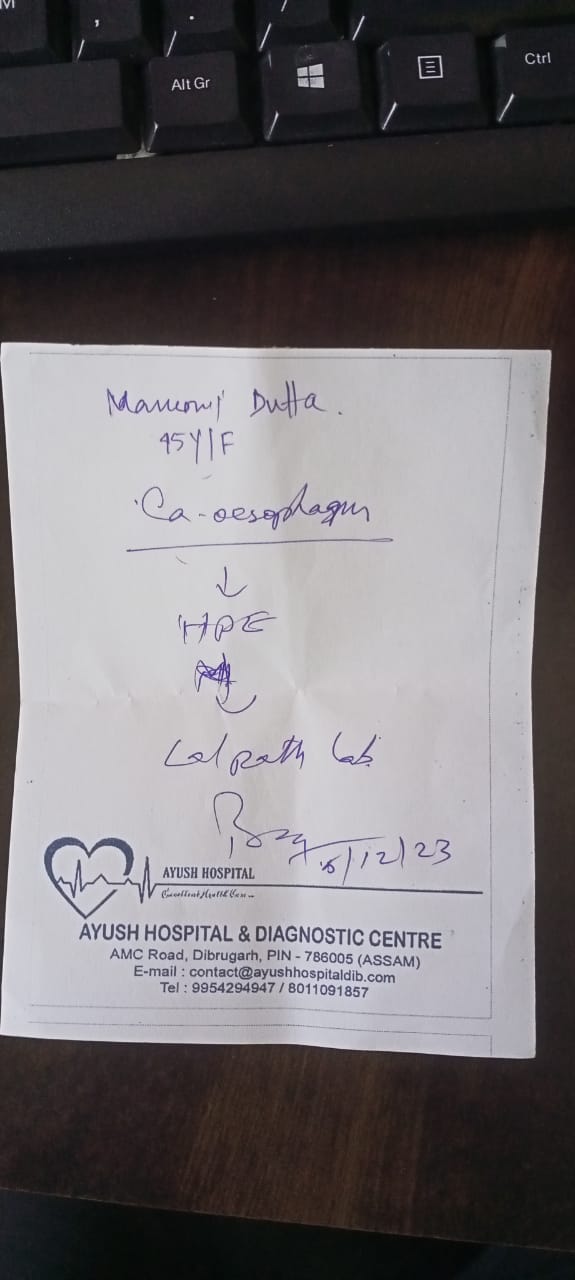 M
,
.
/
Alt Gr
Ctrl
Dutta.
45Y/F
Ca-oesophagus
HPE
Lal path lab.
/12/23
AYUSH HOSPITAL
Excellent Health Care
AYUSH HOSPITAL & DIAGNOSTIC CENTRE
AMC Road, Dibrugarh, PIN - 786005 (ASSAM)
E-mail : contact@ayushhospitaldib.com
Tel : 9954294947 / 8011091857